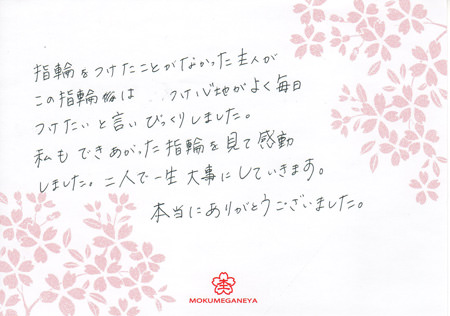 指輪をつけたことがなかった主人が
この指輪は つけ心地がよく毎日
つけたいと言いびっくりしました。
私もできあがった指輪を見て感動
しました。二人で一生大事にしていきます。
本当にありがとうございました。
MOKUMEGANEYA